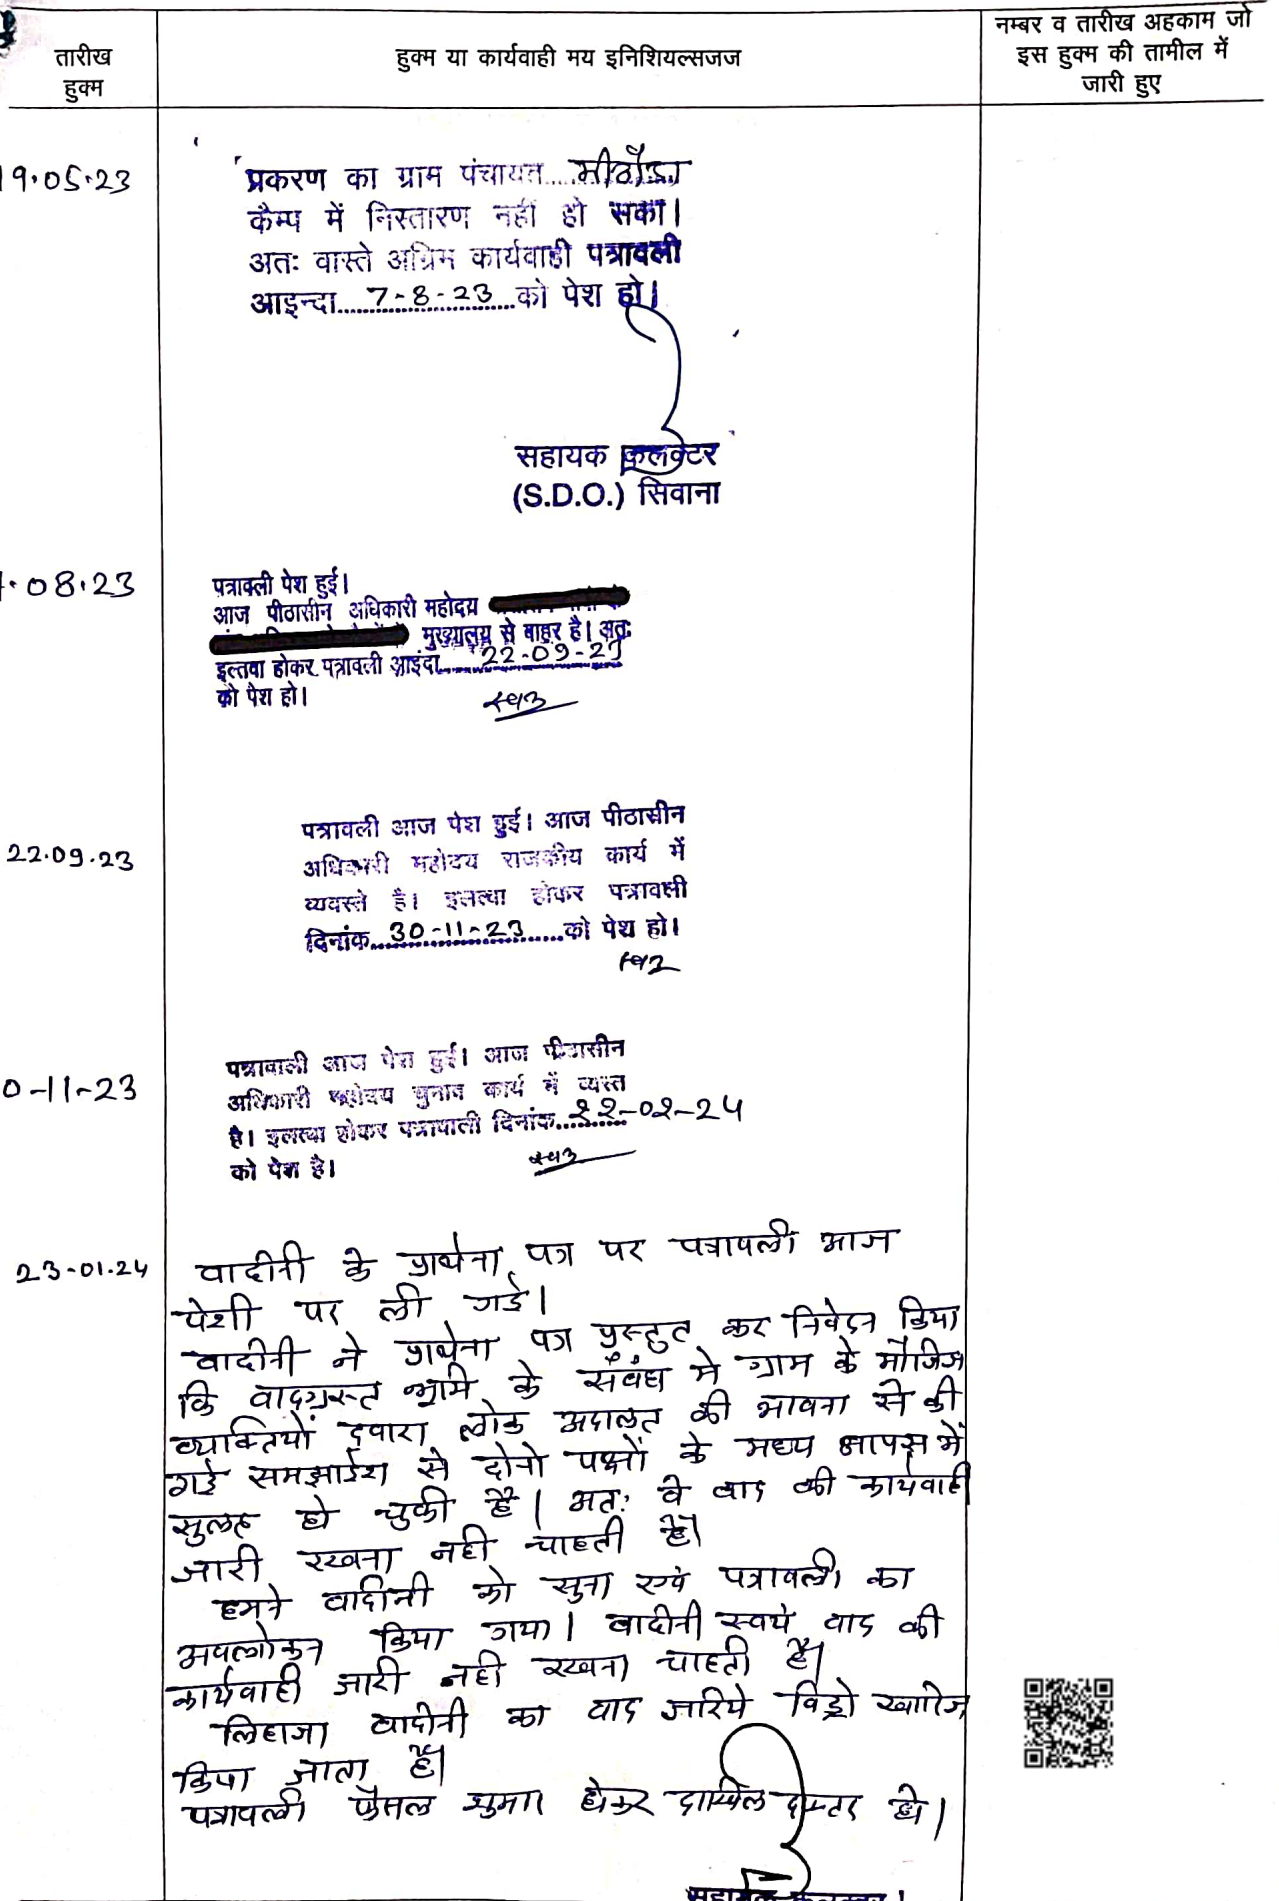 तारीख
हुक्म
हुक्म या कार्यवाही मय इनिशियल्सजज
नम्बर व तारीख अहकाम जो
इस हुक्म की तामील में
जारी हुए
19.05.23
प्रकरण का ग्राम पंचायत.....मीठौडा
कैम्प में निस्तारण नहीं हो सका।
अतः वास्ते अग्रिम कार्यवाही पत्रावली
आइन्दा....7-8-23...को पेश हो।
सहायक कलक्टर
(S.D.O.) सिवाना
.08.23
पत्रावली पेश हुई।
आज पीठासीन अधिकारी महोदय
मुख्यालय से बाहर है। अतः
इल्तवा होकर पत्रावली आइंदा.....22-09-23
को पेश हो।
22.09.23
पत्रावली आज पेश हुई। आज पीठासीन
अधिकारी महोदय राजकीय कार्य में
व्यवस्ते है। इलत्वा होकर पत्रावली
दिनांक...30-11-23.....को पेश हो।
0-11-23
पत्रावाली आज पेश हुई। आज पीठासीन
अधिकारी महोदय चुनाव कार्य में व्यस्त
है। इलत्वा होकर पत्रावाली दिनांक...22-02-24
को पेश है।
23-01-24
वादीनी के प्रार्थना पत्र पर पत्रावली आज
पेशी पर ली गई।
वादीनी ने प्रार्थना पत्र प्रस्तुत कर निवेदन किया
कि वादग्रस्त भूमि के संबंध मे ग्राम के मौजिज
व्यक्तियों द्वारा लोक अदालत की भावना से की
गई समझाईश से दोनो पक्षों के मध्य आपस में
सुलह हो चुकी है। अतः वे वाद की कार्यवाही
जारी रखना नही चाहती है।
हमने वादीनी को सुना एवं पत्रावली का
अवलोकन किया गया। वादीनी स्वयं वाद की
कार्यवाही जारी नही रखना चाहती है।
लिहाजा वादीनी का वाद जरिये विड्रो खारिज
किया जाता है।
पत्रावली फैसल शुमार होकर दाखिल दफ्तर हो।
सहायक कलक्टर